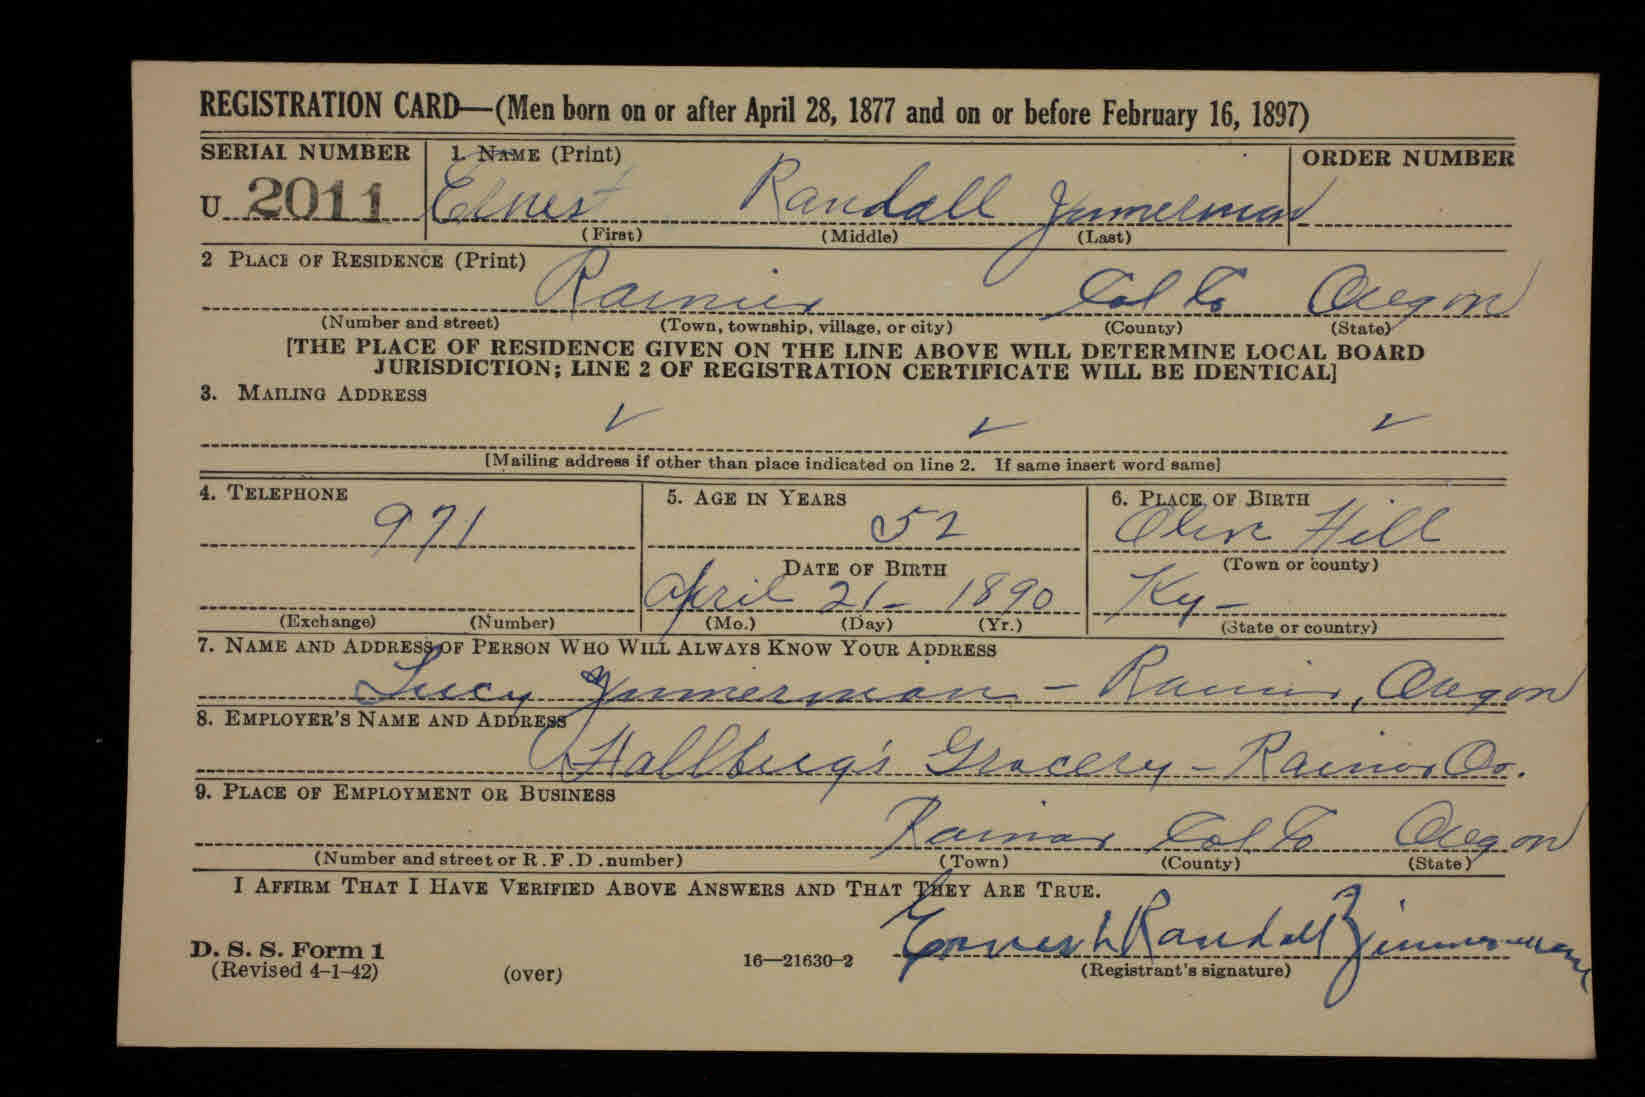 REGISTRATION CARD—(Men born on or after April 28, 1877 and on or before February 16, 1897)
SERIAL NUMBER 1. NAME (Print) ORDER NUMBER
U 2011 Ernest Randall Zimmerman
(First) (Middle) (Last)
2 PLACE OF RESIDENCE (Print)
Rainier Col Co Oregon
(Number and street) (Town, township, village, or city) (County) (State)
[THE PLACE OF RESIDENCE GIVEN ON THE LINE ABOVE WILL DETERMINE LOCAL BOARD
JURISDICTION; LINE 2 OF REGISTRATION CERTIFICATE WILL BE IDENTICAL]
3. MAILING ADDRESS
✓ ✓ ✓
[Mailing address if other than place indicated on line 2. If same insert word same]
4. TELEPHONE 5. AGE IN YEARS 6. PLACE OF BIRTH
971 52 Olive Hill
DATE OF BIRTH (Town or county)
April 21- 1890 Ky-
(Exchange) (Number) (Mo.) (Day) (Yr.) (State or country)
7. NAME AND ADDRESS OF PERSON WHO WILL ALWAYS KNOW YOUR ADDRESS
Lucy Zimmerman - Rainier, Oregon
8. EMPLOYER'S NAME AND ADDRESS
Hallberg's Grocery - Rainier Or.
9. PLACE OF EMPLOYMENT OR BUSINESS
Rainier Col Co Oregon
(Number and street or R. F. D. number) (Town) (County) (State)
I AFFIRM THAT I HAVE VERIFIED ABOVE ANSWERS AND THAT THEY ARE TRUE.
Ernest Randall Zimmerman
D. S. S. Form 1
(Revised 4-1-42) (over) 16—21630-2 (Registrant's signature)